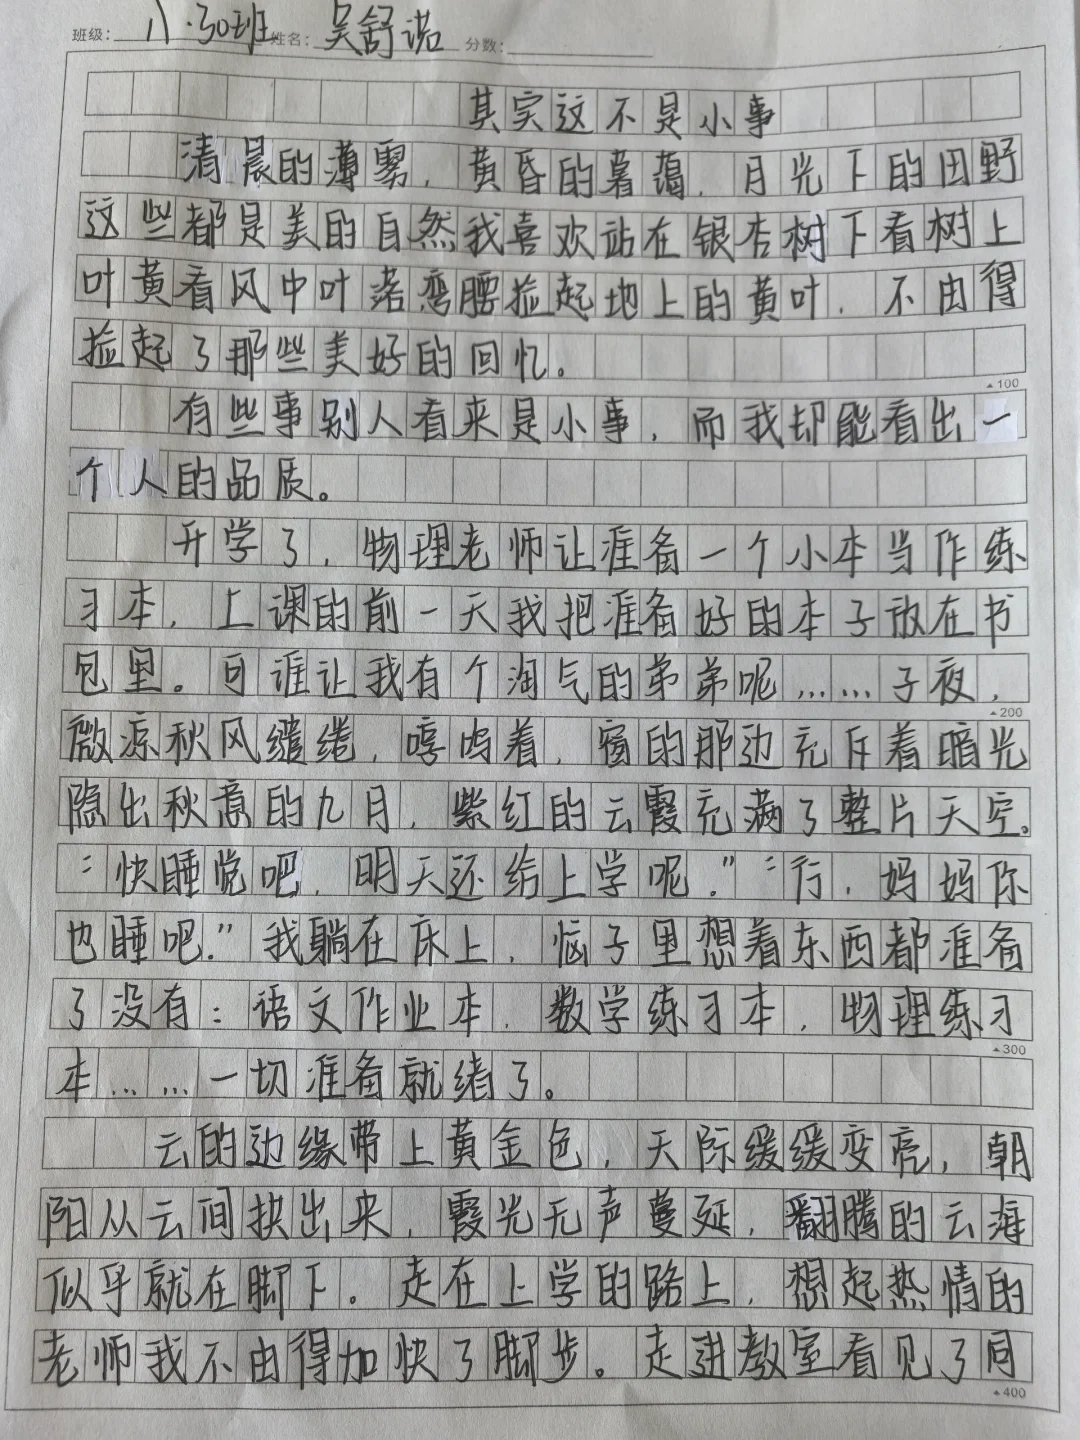 班级: 八.30班 姓名: 吴舒诺 分数:
其实这不是小事
清晨的薄雾，黄昏的暮霭，月光下的田野
这些都是美的自然我喜欢站在银杏树下看树上
叶黄看风中叶落弯腰捡起地上的黄叶，不由得
捡起了那些美好的回忆。
▲100
有些事别人看来是小事，而我却能看出一
个人的品质。
开学了，物理老师让准备一个小本当作练
习本，上课的前一天我把准备好的本子放在书
包里。可谁让我有个淘气的弟弟呢……子夜，
▲200
微凉秋风缱绻，呜着，窗的那边充斥着暗光
隐出秋意的九月，紫红的云霞充满了整片天空。
“快睡觉吧，明天还给上学呢。”“行，妈妈你
也睡吧。”我躺在床上，恼子里想着东西都准备
了没有：语文作业本，数学练习本，物理练习
▲300
本……一切准备就绪了。
云的边缘带上黄金色，天际缓缓变亮，朝
阳从云间抉出来，霞光无声蔓延，翻腾的云海
似乎就在脚下。走在上学的路上，想起热情的
老师我不由得加快了脚步。走进教室看见了同
▲400